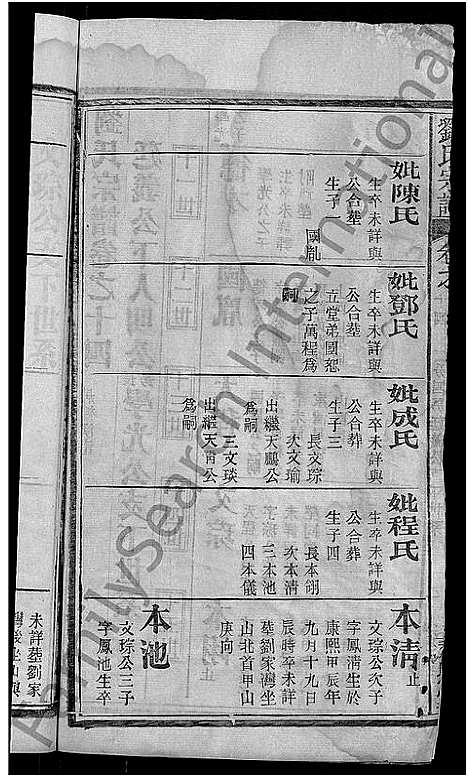 劉氏宗譜
妣陳氏
生卒未詳與
公合塟
生子一
國胤
妣鄧氏
生卒未詳與
公合塟
立堂弟國恕
之子萬程爲
嗣
妣成氏
生卒未詳與
公合葬
生子三
長文琮
次文瑜
出繼天鵬公
爲嗣
三文琰
出繼天甫公
爲嗣
妣程氏
生卒未詳與
公合葬
生子四
長本翎
次本清
三本池
四本儀
本清止
文琮公次子
字鳳清生於
康熙甲辰年
九月十九日
辰時卒未詳
塟劉家灣坐
山北首甲山
庚向
本池
文琮公三子
字鳳池生卒
未詳塟劉家
灣後坐山與
FamilySearch International